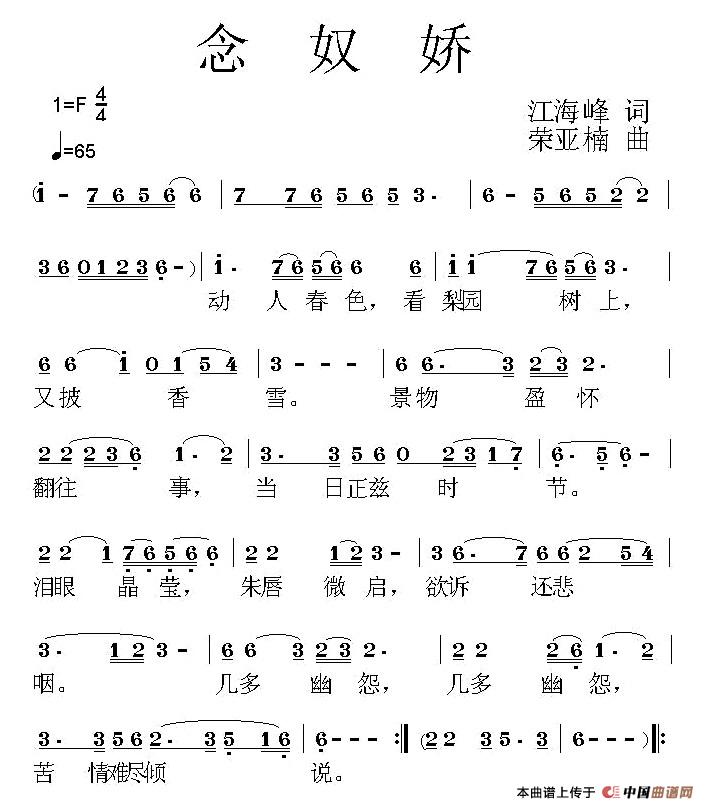 念 奴 娇
1=F 4/4
江海峰 词
♩=65
荣亚楠 曲
(i - 7 6 5 6 6 | 7 7 6 5 6 5 3. | 6 - 5 6 5 2 2 |
3 6 0 1 2 3 6 - ) | i. 7 6 5 6 6 6 | i i 7 6 5 6 3. |
动 人 春 色， 看 梨园 树 上，
6 6 i 0 1 5 4 | 3 - - - | 6 6. 3 2 3 2. |
又披 香 雪。 景物 盈 怀
2 2 2 3 6 1. 2 | 3. 3 5 6 0 2 3 1 7 | 6. 5 6 - |
翻往 事， 当 日正兹 时 节。
2 2 1 7 6 5 6 | 2 2 1 2 3. | 3 6. 7 6 6 2 5 4 |
泪眼 晶 莹， 朱唇 微 启，欲诉 还悲
3. 1 2 3 - | 6 6 3 2 3 2. | 2 2 2 6 1. |
咽。 几多 幽 怨， 几多 幽 怨，
3. 3 5 6 2. 3 5 1 6 | 6 - - :| ( 2 2 3 5. 3 | 6 - - - ) :|
苦 情难尽倾 说。
本曲谱上传于 中国曲谱网